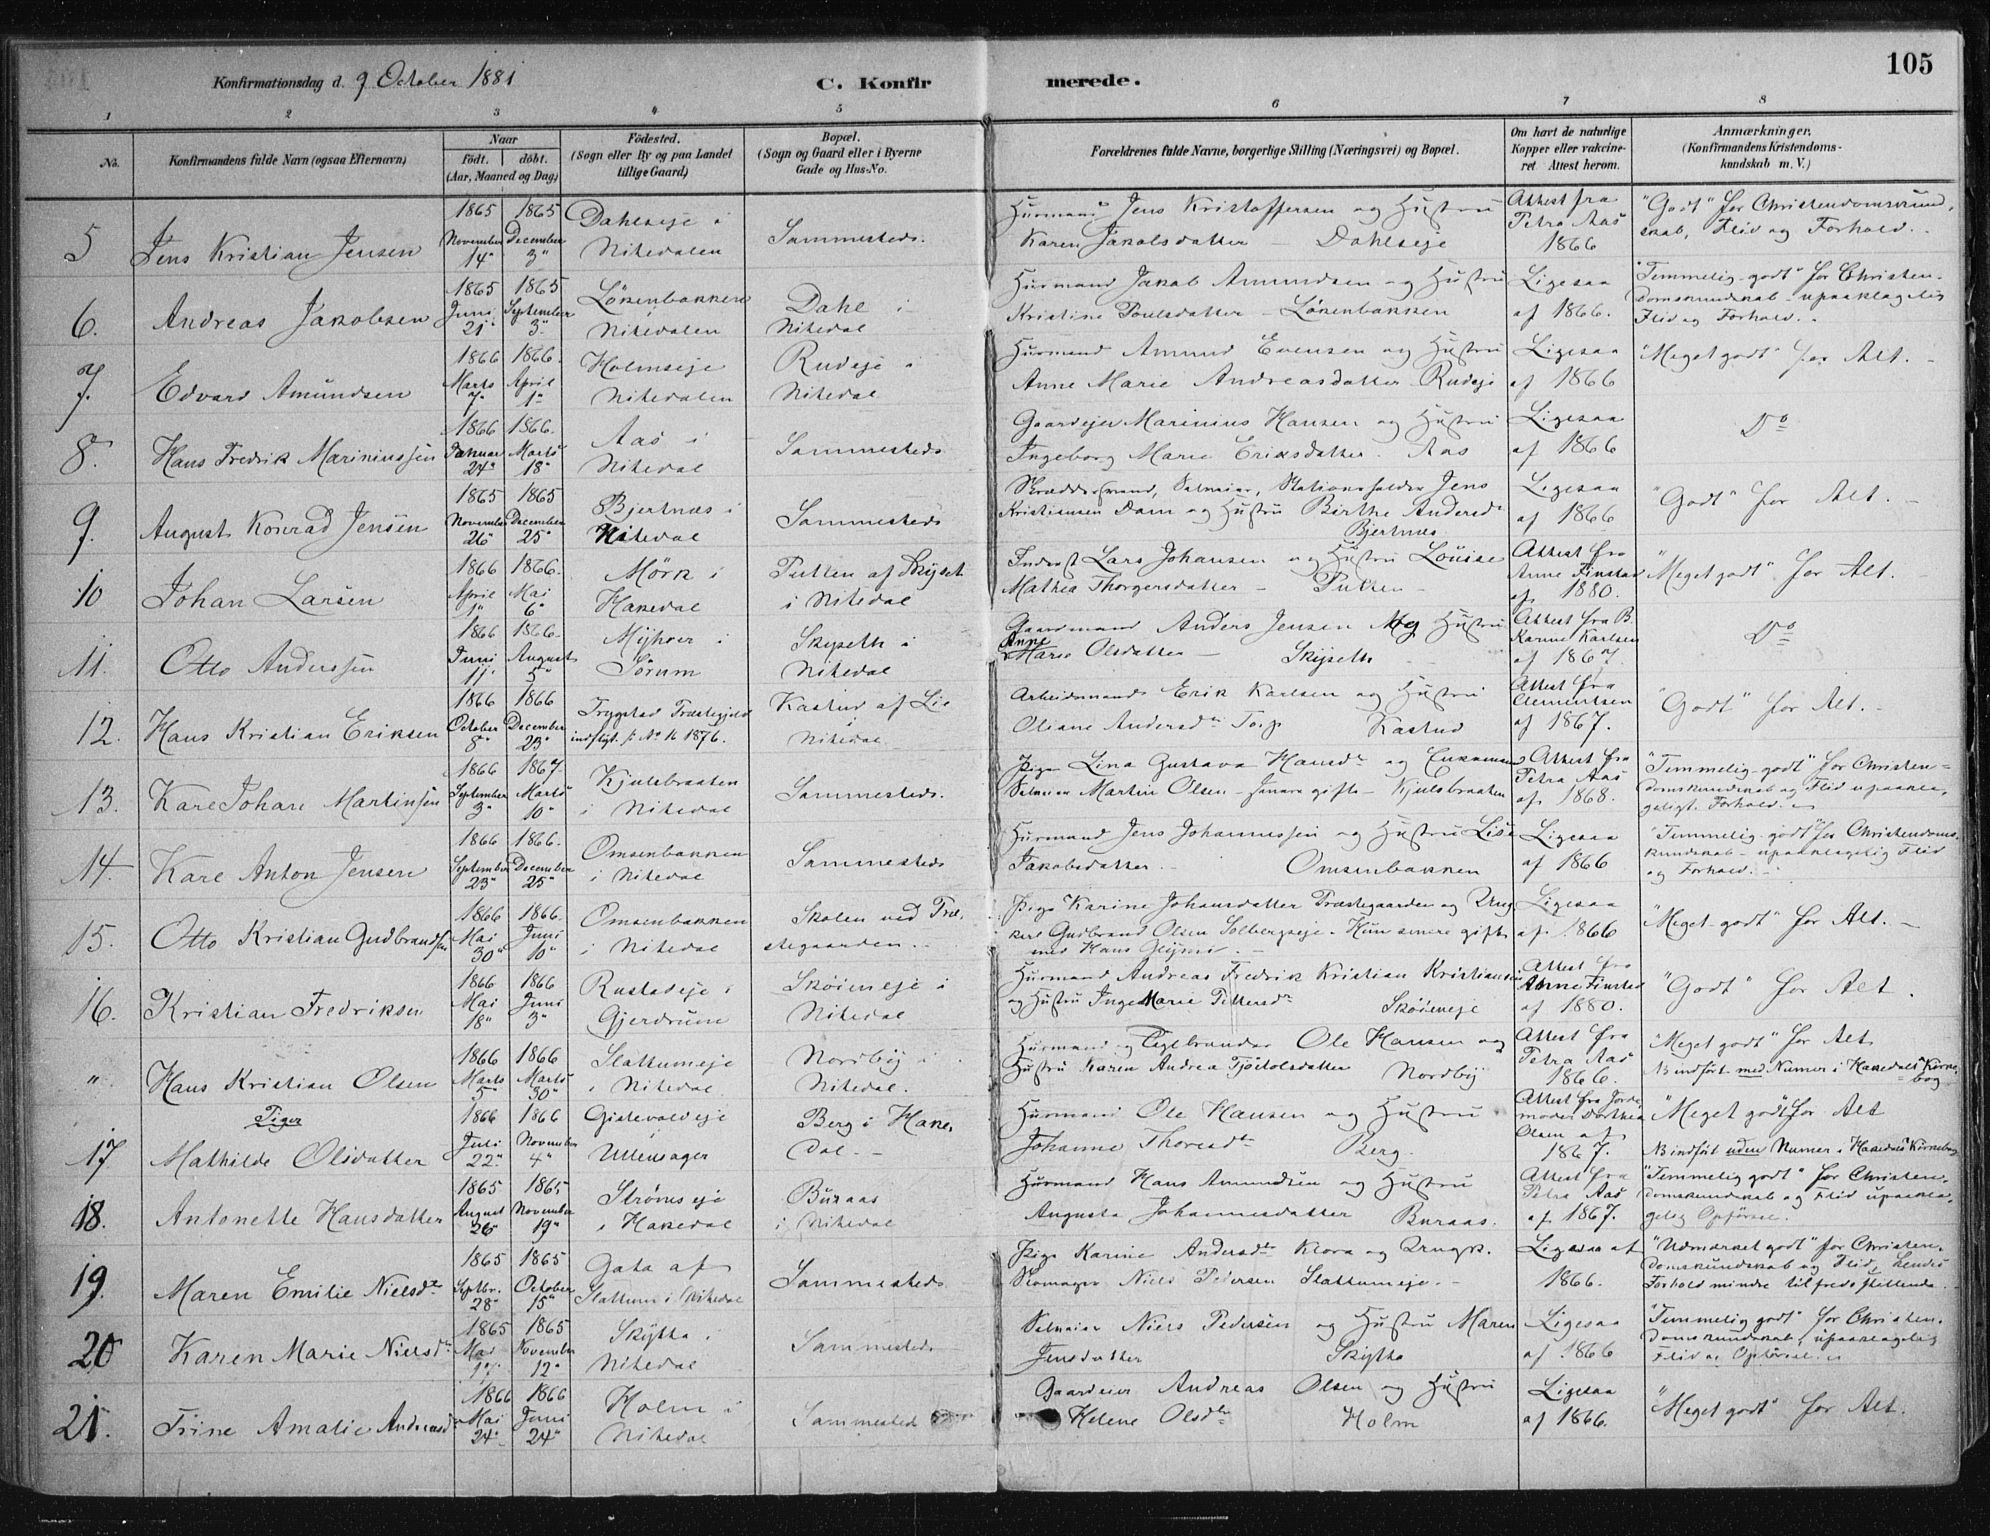 105
Konfirmationsdag d. 9 October 1881 C. Konfirmerede.
1 2 3 4 5 6 7 8
No. Konfirmandens fulde Navn (ogsaa Efternavn) Naar födt. döbt. (Aar, Maaned og Dag) Födested. (Sogn eller By og paa Landet tillige Gaard) Bopæl. (Sogn og Gaard eller i Byerne Gade og Hus-No. Forældrenes fulde Navne, borgerlige Stilling (Næringsvei) og Bopæl. Om havt de naturlige Kopper eller vakcineret Attest herom. Anmærkninger, (Konfirmandens Kristendomskundskab m. V.)
5 Jens Kristian Jensen 1865 November 14" 1865 December 3" Dahlseje i Nitedalen Sammesteds. Husmand Jens Kristoffersen og Hustru Karen Jakobsdatter – Dahlseje Attest fra Petra Aas 1866 "Godt" for Christendomskundskab, Flid og Forhold.
6. Andreas Jakobsen 1865 Juni 21" 1865 September 3" Lökenbakken Nitedalen Dahl i Nitedal Husmand Jakob Amundsen og Hustru Kristine Poulsdatter – Lökenbakken Ligesaa af 1866. "Temmelig godt" for Christendomskundskab – upaaklagelig Flid og Forhold.
7. Edvard Amundsen 1866 Marts 7" 1866. April 1" Holmseje Nitedalen Rudeje i Nitedal Husmand Amund Evensen og Hustru Anne Marie Andreasdatter Rudeje Ligesaa af 1866 "Meget godt" for Alt. –
8. Hans Fredrik Marinius sen 1866 Januar 24" 1866. Marts 18" Aas i Nitedal Sammesteds Gaardejer Marinius Hansen og Hustru Ingeborg Marie Eriksdatter. Aas Ligesaa af 1866 Do
9. August Konrad Jensen 1865 November 26" 1865 December 25" Bjertnæs i Nitedal Sammesteds Skrædder, Selveier, Stationsholder Jens Kristiansen Dam og Hustru Birthe Andersdr Bjertnæs Ligesaa af 1866 "Godt" for Alt. –
10 Johan Larsen 1866 April 1" 1866. Mai 6" Mörk i Hakedal Putten af Skyset i Nitedal Inderst Lars Johansen og Hustru Louise Mathea Thorgersdatter – Putten – Attest fra Anne Finstad af 1880. "Meget godt" for Alt. –
11. Otto Anderssen 1866 Juni 11" 1866. August 5" Myhrer i Sörum Skyseth i Nitedal Gaardmand Anders Jensen og Hustru Anne Marie Olsdatter – Skyseth – Attest fra B. Karine Karlsen af 1867. Do
12. Hans Kristian Eriksen 1866 October 8" 1866 December 23" Trygstad Præstegjeld indflyt. f. No 16 1876. Kastud af Lie i Nitedal Arbeidsmand Erik Karlsen og Hustru Oliane Andersdr Torp Kastud Attest fra Clementsen af 1867. "Godt" for Alt. –
13. Karl Johan Martinsen 1866 September 3" 1867. Marts 10" Kjulsbraaten i Nitedal Sammesteds. Pige Lina Gustava Hansdr og Enkemand Selveier Martin Olsen – senere gifte – Kjulsbraaten Attest fra Petra Aas af 1868. "Temmelig godt" for Christendomskundskab og Flid upaaklageligt. Forhold.
14. Karl Anton Jensen 1866 September 23" 1866. December 25" Omsenbakken i Nitedal Sammesteds Husmand Jens Johannessen og Hustru Lise Jakobsdatter. – Omsenbakken Ligesaa af 1866 "Temmelig godt" for Christendomskundskab – upaaklagelig Flid og Forhold. –
15. Otto Kristian Gudbrandsen 1866 Mai 30" 1866. Juni 10" Omsenbakken i Nitedal Skolen ved Præstegaarden. Pige Karine Johansdatter Præstegaarden og Ungkarl Gudbrand Olsen Solbergseje. Hun senere gift med Hans Ligesaa af 1866 "Meget godt" for Alt. –
16. Kristian Fredriksen 1866 Mai 18" 1866 Juni 3" Rustadeje i Gjerdrum Sköieneje i Nitedal Husmand Andreas Fredrik Kristian Kristiansen og Hustru Inger Marie Pettersdr Sköieneje Attest fra Anne Finstad af 1880. "Godt" for Alt.
" Hans Kristian Olsen 1866 Marts 5" 1866 Marts 30" Slattumeje i Nitedal Nordby i Nitedal. Husmand og Teglbrænder Ole Hansen og Hustru Karen Andrea Tjöstolsdatter Nordby Attest fra Petra Aas 1866. "Meget godt" for Alt NB indfört med Numer i Hakedals Kirkebog
Piger
17 Mathilde Olsdatter 1866 Juli 22" 1866 November 4" Gistevoldeje i Ullensager Berg i Hakedal. – Husmand Ole Hansen og Hustru Johanne Thorsdr Berg. Attest fra Jordemoder Dorthea Olsen af 1867. "Meget godt" for Alt NB indfört uden Numer i Hakedals Kirkebog
18. Antonette Hansdatter 1865 August 26" 1865 November 19" Strömseje i Hakedal Buraas i Nitedal Husmand Hans Amundsen og Hustru Augusta Johannesdatter Buraas. Attest fra Petra Aas af 1867. "Temmelig godt" for Christendomskundskab og Flid upaaklagelig Opförsel.
19. Maren Emilie Nielsdr 1865 Septbr. 28" 1865 October 15" Gata af Slattum i Nitedal Sammesteds Pige Karine Andersdr Klova og Ungk. Skomager Niels Pedersen Slattumeje. – Ligesaa af 1866. "Udmærket godt" for Christendomskundskab og Flid, hendes Forhold mindre tilfredsstillende.
20 Karen Marie Nielsdr 1865 Mai 1865 November 12" Skytta i Nitedal Sammesteds Selveier Niels Pedersen og Hustru Maren Jensdatter Skytta Ligesaa af 1866 "Temmelig godt" for Christendomskundskab, upaaklagelig Flid og Opförsel.
21. Trine Amalie Andreasdr 1866 Mai 24" 1866 Juni 24" Holm i Nitedal Sammesteds Gaardeier Andreas Olsen og Hustru Helene Olsdr Holm Ligesaa af 1866. "Meget godt" for Alt.